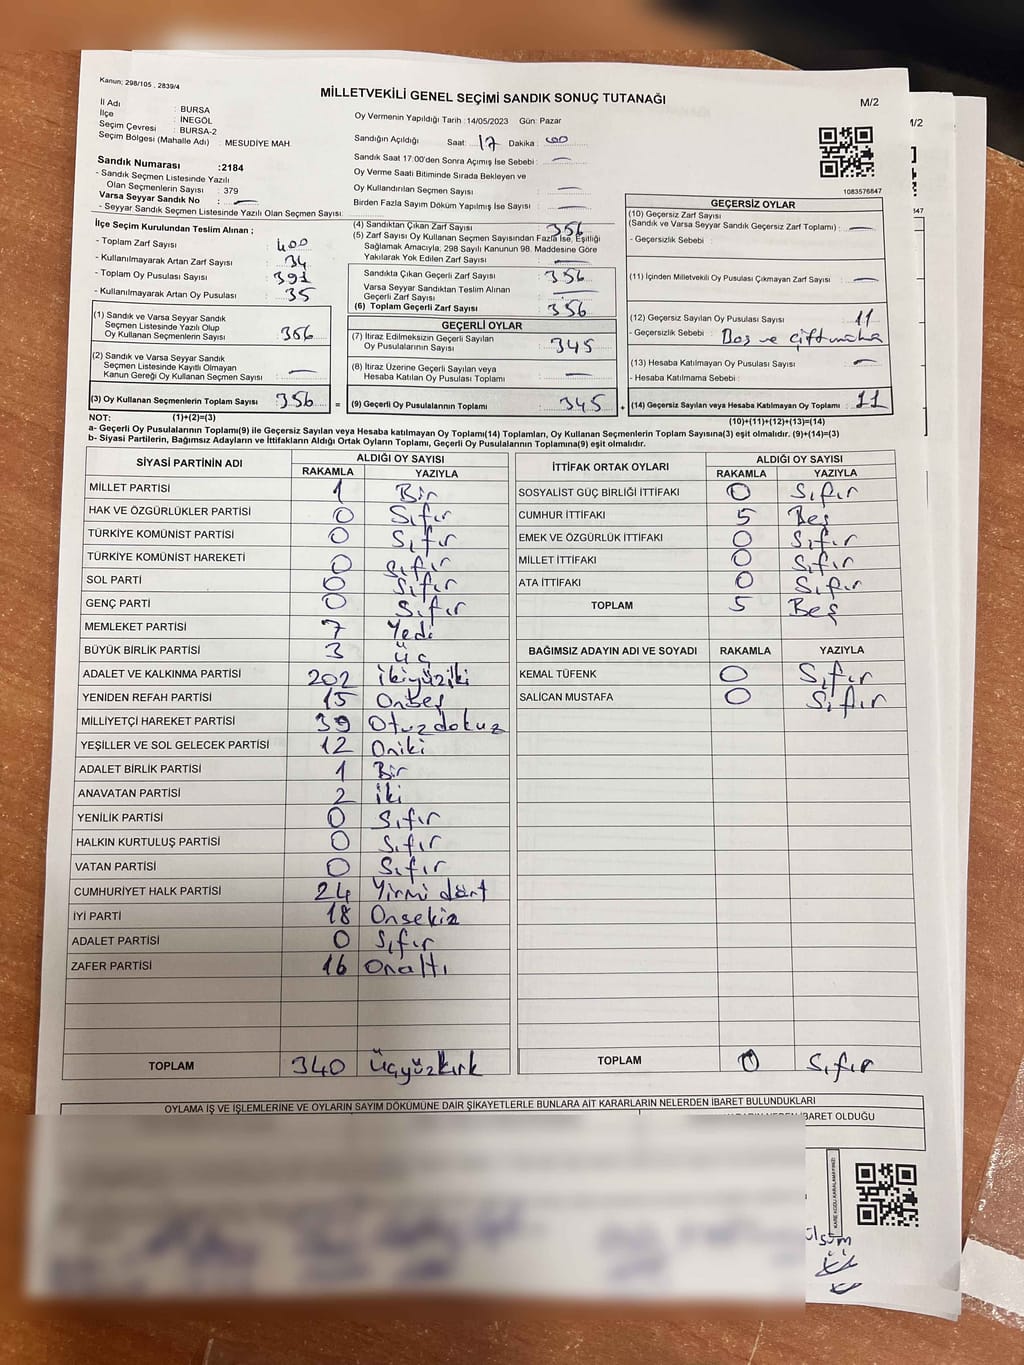 Kanun; 298/105 , 2839/4
MİLLETVEKİLİ GENEL SEÇİMİ SANDIK SONUÇ TUTANAĞI
M/2
İl Adı : BURSA
İlçe : İNEGÖL
Seçim Çevresi : BURSA-2
Seçim Bölgesi (Mahalle Adı) : MESUDİYE MAH.
Sandık Numarası :2184
- Sandık Seçmen Listesinde Yazılı
Olan Seçmenlerin Sayısı : 379
Varsa Seyyar Sandık No : —
- Seyyar Sandık Seçmen Listesinde Yazılı Olan Seçmen Sayısı:
Oy Vermenin Yapıldığı Tarih :14/05/2023 Gün: Pazar
Sandığın Açıldığı Saat: 17 Dakika: 00
Sandık Saat 17:00'den Sonra Açımış İse Sebebi : —
Oy Verme Saati Bitiminde Sırada Bekleyen ve
Oy Kullandırılan Seçmen Sayısı : —
Birden Fazla Sayım Döküm Yapılmış İse Sayısı : —
1083576847
İlçe Seçim Kurulundan Teslim Alınan ;
- Toplam Zarf Sayısı : 400
- Kullanılmayarak Artan Zarf Sayısı : 34
- Toplam Oy Pusulası Sayısı : 391
- Kullanılmayarak Artan Oy Pusulası : 35
(1) Sandık ve Varsa Seyyar Sandık
Seçmen Listesinde Yazılı Olup
Oy Kullanan Seçmenlerin Sayısı : 356
(2) Sandık ve Varsa Seyyar Sandık
Seçmen Listesinde Kayıtlı Olmayan
Kanun Gereği Oy Kullanan Seçmen Sayısı : —
(3) Oy Kullanan Seçmenlerin Toplam Sayısı : 356 =
(4) Sandıktan Çıkan Zarf Sayısı : 356
(5) Zarf Sayısı Oy Kullanan Seçmen Sayısından Fazla İse, Eşitliği
Sağlamak Amacıyla, 298 Sayılı Kanunun 98. Maddesine Göre
Yakılarak Yok Edilen Zarf Sayısı : —
Sandıkta Çıkan Geçerli Zarf Sayısı : 356
Varsa Seyyar Sandıktan Teslim Alınan
Geçerli Zarf Sayısı : —
(6) Toplam Geçerli Zarf Sayısı : 356
GEÇERLİ OYLAR
(7) İtiraz Edilmeksizin Geçerli Sayılan
Oy Pusulalarının Sayısı : 345
(8) İtiraz Üzerine Geçerli Sayılan veya
Hesaba Katılan Oy Pusulası Toplamı : —
(9) Geçerli Oy Pusulalarının Toplamı : 345 +
GEÇERSİZ OYLAR
(10) Geçersiz Zarf Sayısı
(Sandık ve Varsa Seyyar Sandık Geçersiz Zarf Toplamı) : —
- Geçersizlik Sebebi :
(11) İçinden Milletvekili Oy Pusulası Çıkmayan Zarf Sayısı : —
(12) Geçersiz Sayılan Oy Pusulası Sayısı : 11
- Geçersizlik Sebebi : Boş ve çift mühür
(13) Hesaba Katılmayan Oy Pusulası Sayısı : —
- Hesaba Katılmama Sebebi :
(14) Geçersiz Sayılan veya Hesaba Katılmayan Oy Toplamı : 11
NOT: (1)+(2)=(3)
(10)+(11)+(12)+(13)=(14)
a- Geçerli Oy Pusulalarının Toplamı(9) ile Geçersiz Sayılan veya Hesaba Katılmayan Oy Toplamı(14) Toplamları, Oy Kullanan Seçmenlerin Toplam Sayısına(3) eşit olmalıdır. (9)+(14)=(3)
b- Siyasi Partilerin, Bağımsız Adayların ve İttifakların Aldığı Ortak Oyların Toplamı, Geçerli Oy Pusulalarının Toplamına(9) eşit olmalıdır.
SİYASİ PARTİNİN ADI ALDIĞI OY SAYISI
RAKAMLA YAZIYLA
MİLLET PARTİSİ 1 Bir
HAK VE ÖZGÜRLÜKLER PARTİSİ 0 Sıfır
TÜRKİYE KOMÜNİST PARTİSİ 0 Sıfır
TÜRKİYE KOMÜNİST HAREKETİ 0 Sıfır
SOL PARTİ 0 Sıfır
GENÇ PARTİ 0 Sıfır
MEMLEKET PARTİSİ 7 Yedi
BÜYÜK BİRLİK PARTİSİ 3 Üç
ADALET VE KALKINMA PARTİSİ 202 İkiyüziki
YENİDEN REFAH PARTİSİ 15 Onbeş
MİLLİYETÇİ HAREKET PARTİSİ 39 Otuzdokuz
YEŞİLLER VE SOL GELECEK PARTİSİ 12 Oniki
ADALET BİRLİK PARTİSİ 1 Bir
ANAVATAN PARTİSİ 2 İki
YENİLİK PARTİSİ 0 Sıfır
HALKIN KURTULUŞ PARTİSİ 0 Sıfır
VATAN PARTİSİ 0 Sıfır
CUMHURİYET HALK PARTİSİ 24 Yirmi dört
İYİ PARTİ 18 Onsekiz
ADALET PARTİSİ 0 Sıfır
ZAFER PARTİSİ 16 Onaltı
TOPLAM 340 Üçyüzkırk
İTTİFAK ORTAK OYLARI ALDIĞI OY SAYISI
RAKAMLA YAZIYLA
SOSYALİST GÜÇ BİRLİĞİ İTTİFAKI 0 Sıfır
CUMHUR İTTİFAKI 5 Beş
EMEK VE ÖZGÜRLÜK İTTİFAKI 0 Sıfır
MİLLET İTTİFAKI 0 Sıfır
ATA İTTİFAKI 0 Sıfır
TOPLAM 5 Beş
BAĞIMSIZ ADAYIN ADI VE SOYADI RAKAMLA YAZIYLA
KEMAL TÜFENK 0 Sıfır
SALİCAN MUSTAFA 0 Sıfır
TOPLAM 0 Sıfır
OYLAMA İŞ VE İŞLEMLERİNE VE OYLARIN SAYIM DÖKÜMÜNE DAİR ŞİKAYETLERLE BUNLARA AİT KARARLARIN NELERDEN İBARET BULUNDUKLARI
İBARET OLDUĞU
KARE KODU KARALAMAYINIZ!